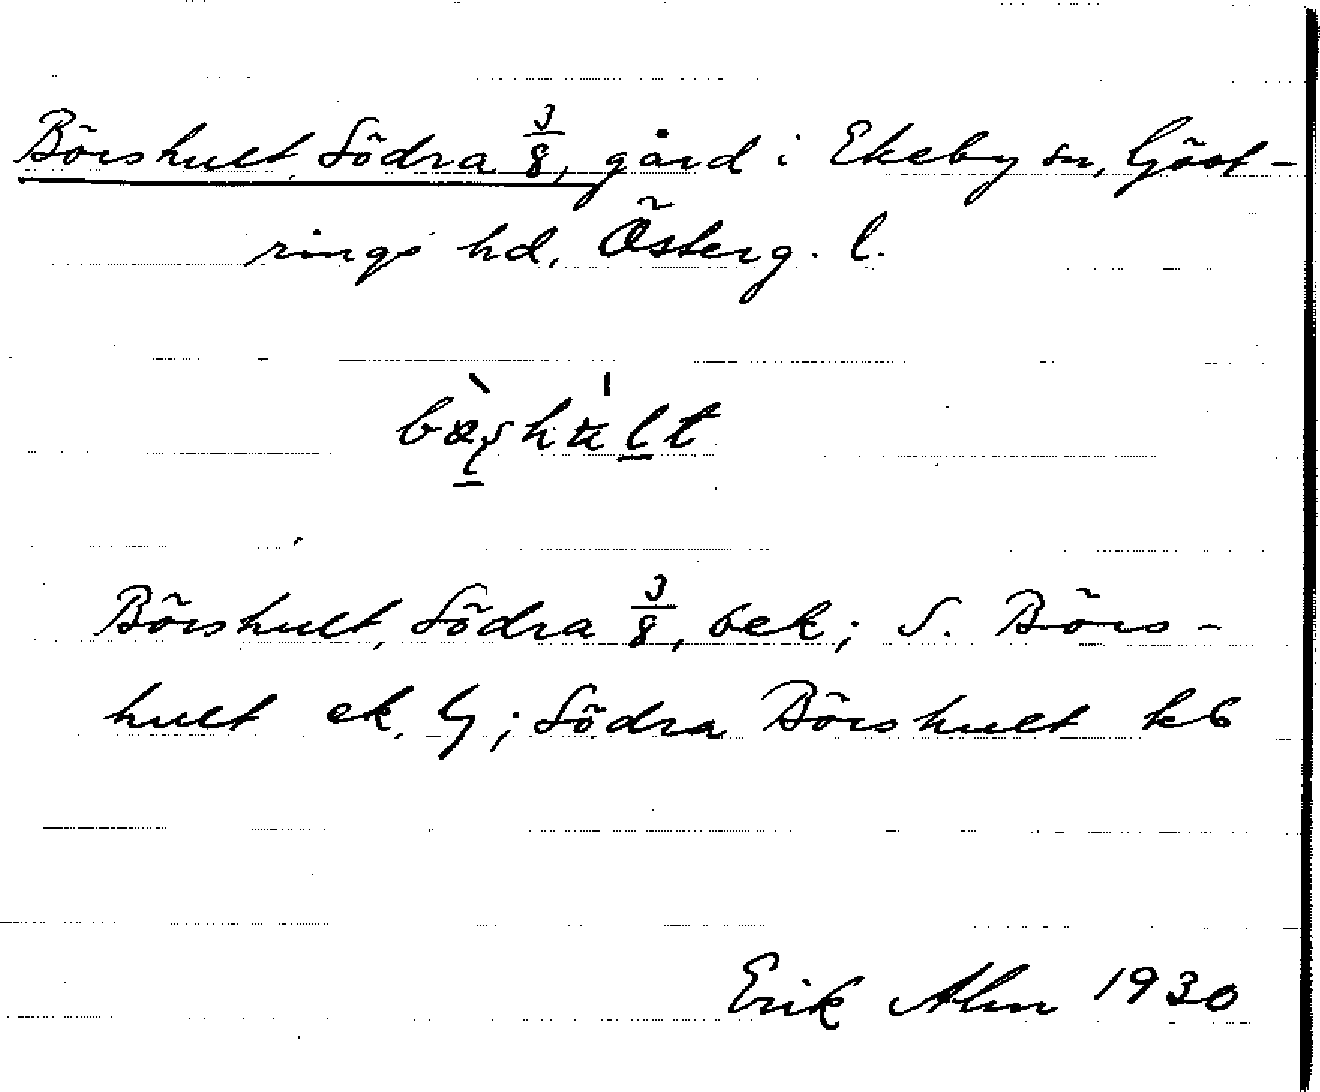 Börshult, Södra 3/8, gård i Ekeby sn, Göst-
rings hd, Österg. l.
Börshult, Södra 3/8, bek; S. Börs-
hult ek. G; Södra Börshult kb
Erik Alm 1930